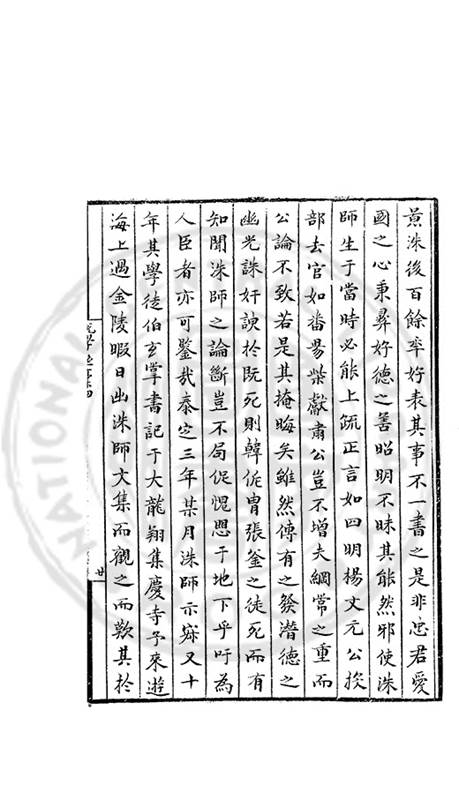 黃洙後百餘年好表其事不一書之是非忠君愛
國之心秉彛好德之善昭明不昧其能然邪使洙
師生于當時必能上疏正言如四明楊文元公授
部去官如番昜柴獻肅公豈不增夫綱常之重而
公論不致若是其掩晦矣雖然傳有之發潛德之
幽光誅奸諛於既死則韓侂冑張釜之徒死而有
知聞洙師之論斷豈不局促愧恧于地下乎吁為
人臣者亦可鑒哉泰定三年某月洙師示寂又十
年其學徒伯玄掌書記于大龍翔集慶寺予來遊
海上過金陵暇日出洙師文集而觀之而歎其於
廿
NATIONAL